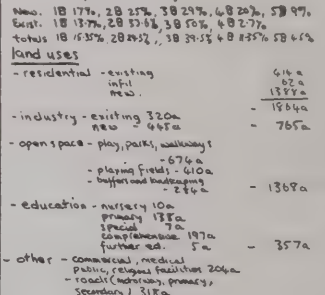 New. 1B 17%, 2B 25%, 3B 29%, 4B 20%, 5B 9%
Exist. 1B 13.7%, 2B 33.6%, 3B 50%, 4B 2.7%
totals 1B 15.35%, 2B 29.3%, 3B 39.5% 4B 11.35% 5B 4.5%
land uses
- residential - existing 414a
infil 62a
new. 1388a
- 1864a
- industry - existing 320a
new - 445a - 765a
- open space - play, parks, walkways
- 674a
- playing fields - 410a
- buffers and landscaping
- 284a - 1368a
- education - nursery 10a
primary 138a
special 7a
comprehensive 197a
further ed. 5a - 357a
- other - commercial, medical
public, religious facilities 204a
- roads (motorway, primary,
secondary) 318a